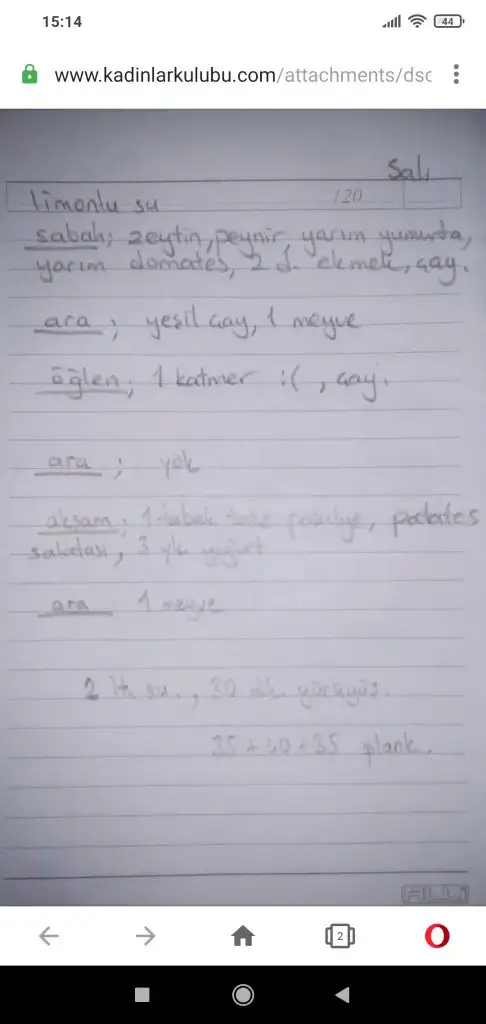 15:14
44
www.kadinlarkulubu.com/attachments/dsc
Salı
/20
limonlu su
sabah; zeytin, peynir, yarım yumurta,
yarım domates, 2 d. ekmek, çay.
ara ; yeşil çay, 1 meyve
öğlen; 1 katmer :( , çay.
ara ; yok
akşam; 1 tabak taze fasulye, patates
salatası, 3 yk yoğurt
ara 1 meyve
2 lt. su., 30 dk. yürüyüş.
35+40+35 plank.
2